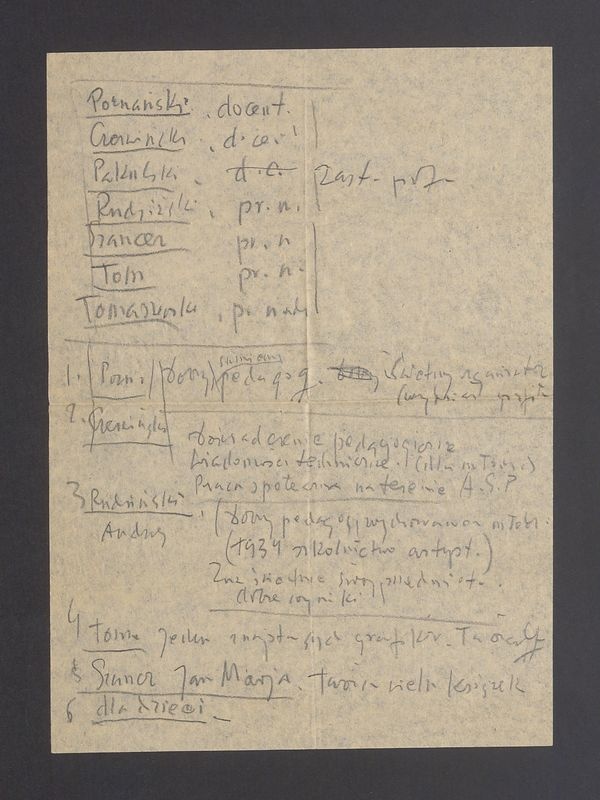 Poznański, docent.
Czerwiński, docent
Pakulski, d.c.
zast. prof.
Rudziński, pr. n.
Szancer pr. n
Tom pr. n.
Tomaszewski, pr nadz
1. Pozn. / dobry / sumienny pedagog. Świetny organizator
2. Czerwiński doświadczenie pedagogiczne
wiadomości techniczne.
Praca społeczna na terenie A.S.P
3 Rudziński, (dobry pedagog, wychowawca młodz.
Andrzej (1934 szkolnictwo artyst.)
Zna świetnie swój przedmiot.
dobre wyniki
4 Tom jeden z najstarszych grafików.
5 Szancer Jan Marja. twórca wielu książek
6 dla dzieci.